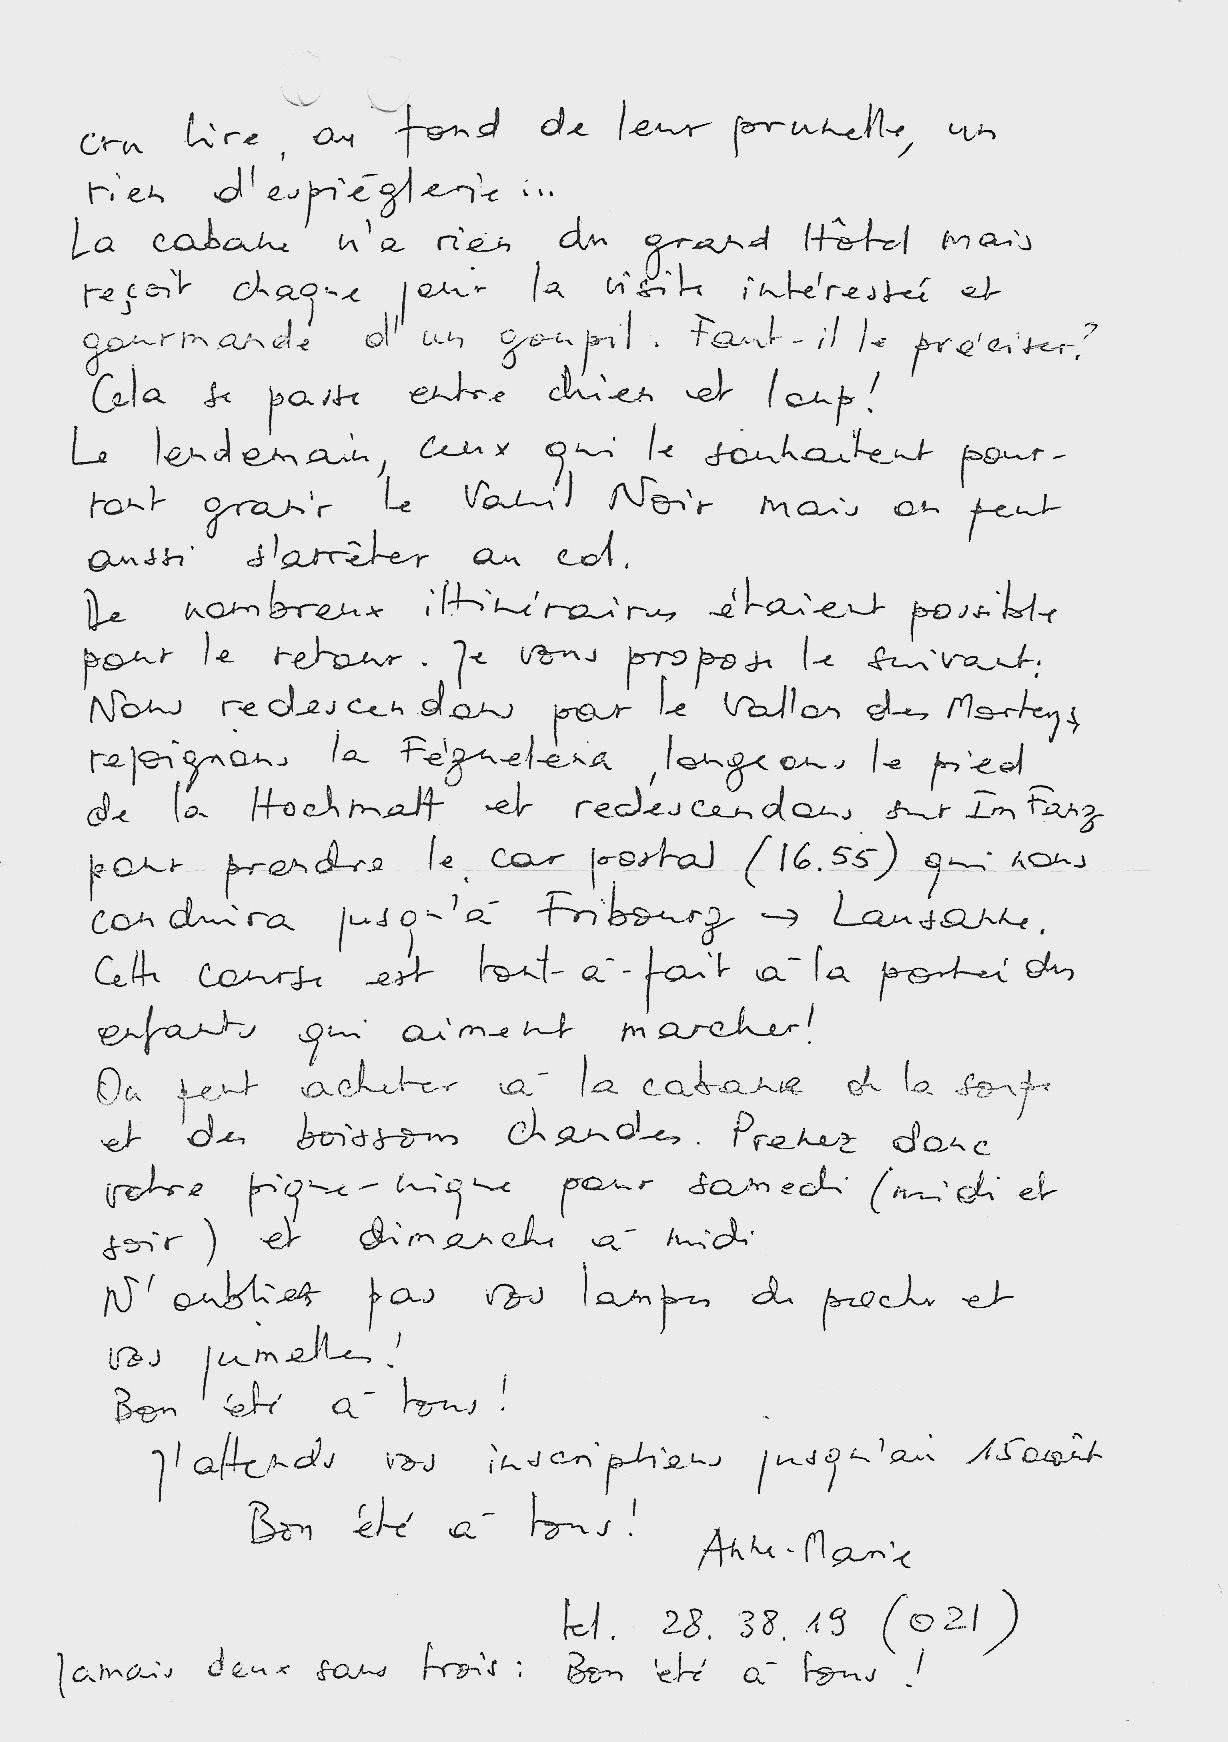 cru lire, au fond de leur prunelle, un
rien d'espièglerie...
La cabane n'a rien du grand Hôtel mais
reçoit chaque jour la visite intéressée et
gourmande d'un goupil. Faut-il le préciser?
Cela se passe entre chien et loup!
Le lendemain, ceux qui le souhaitent pour-
ront gravir le Vanil Noir mais on peut
aussi s'arrêter au col.
De nombreux ittinéraires étaient possible
pour le retour. Je vous propose le suivant:
Nous redescendons par le Vallon des Morteys,
rejoignons la Féguelena, longeons le pied
de la Hochmatt et redescendons sur Im Fang
pour prendre le car postal (16.55) qui nous
conduira jusqu'à Fribourg → Lausanne.
Cette course est tout-à-fait à la portée des
enfants qui aiment marcher!
On peut acheter à la cabane de la soupe
et des boissons chaudes. Prenez donc
votre pique-nique pour samedi (midi et
soir) et dimanche à midi
N'oubliez pas vos lampes de poche et
vos jumelles!
Bon été à tous!
J'attends vos inscriptions jusqu'au 15 août
Bon été à tous!
Anne-Marie
tel. 28.38.19 (021)
Jamais deux sans trois: Bon été à tous!